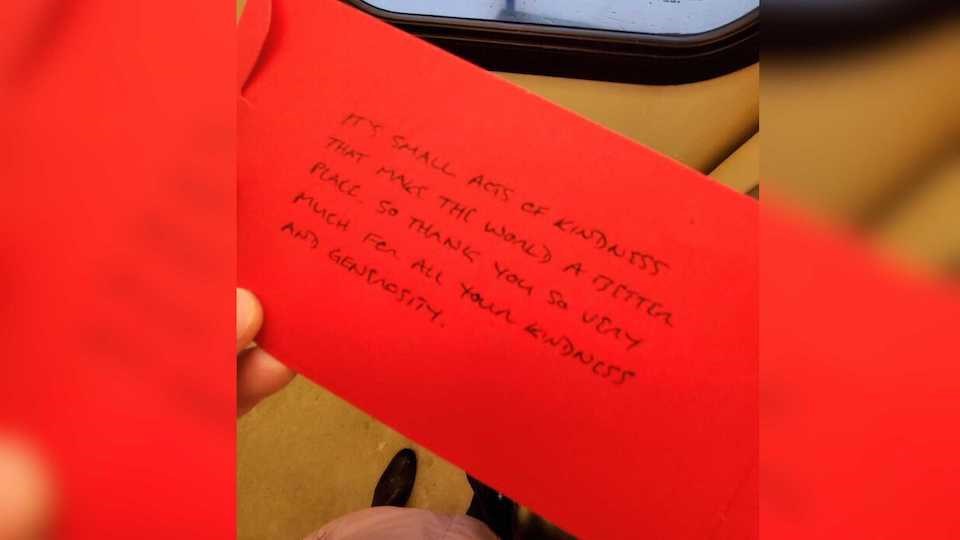 IT'S SMALL ACTS OF KINDNESS
THAT MAKE THE WORLD A BETTER
PLACE. SO THANK YOU SO VERY
MUCH FOR ALL YOUR KINDNESS
AND GENEROSITY.